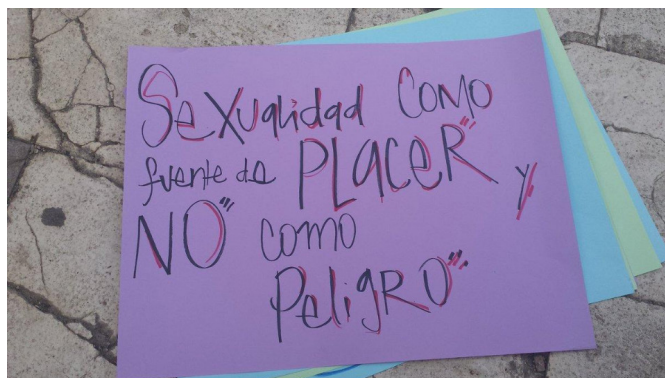 Sexualidad COMO
fuente de PLaceR y
NO como
PeligRO